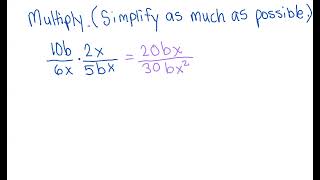 Multiply. (Simplify as much as possible.)
10b/6x · 2x/5bx = 20bx/30bx²